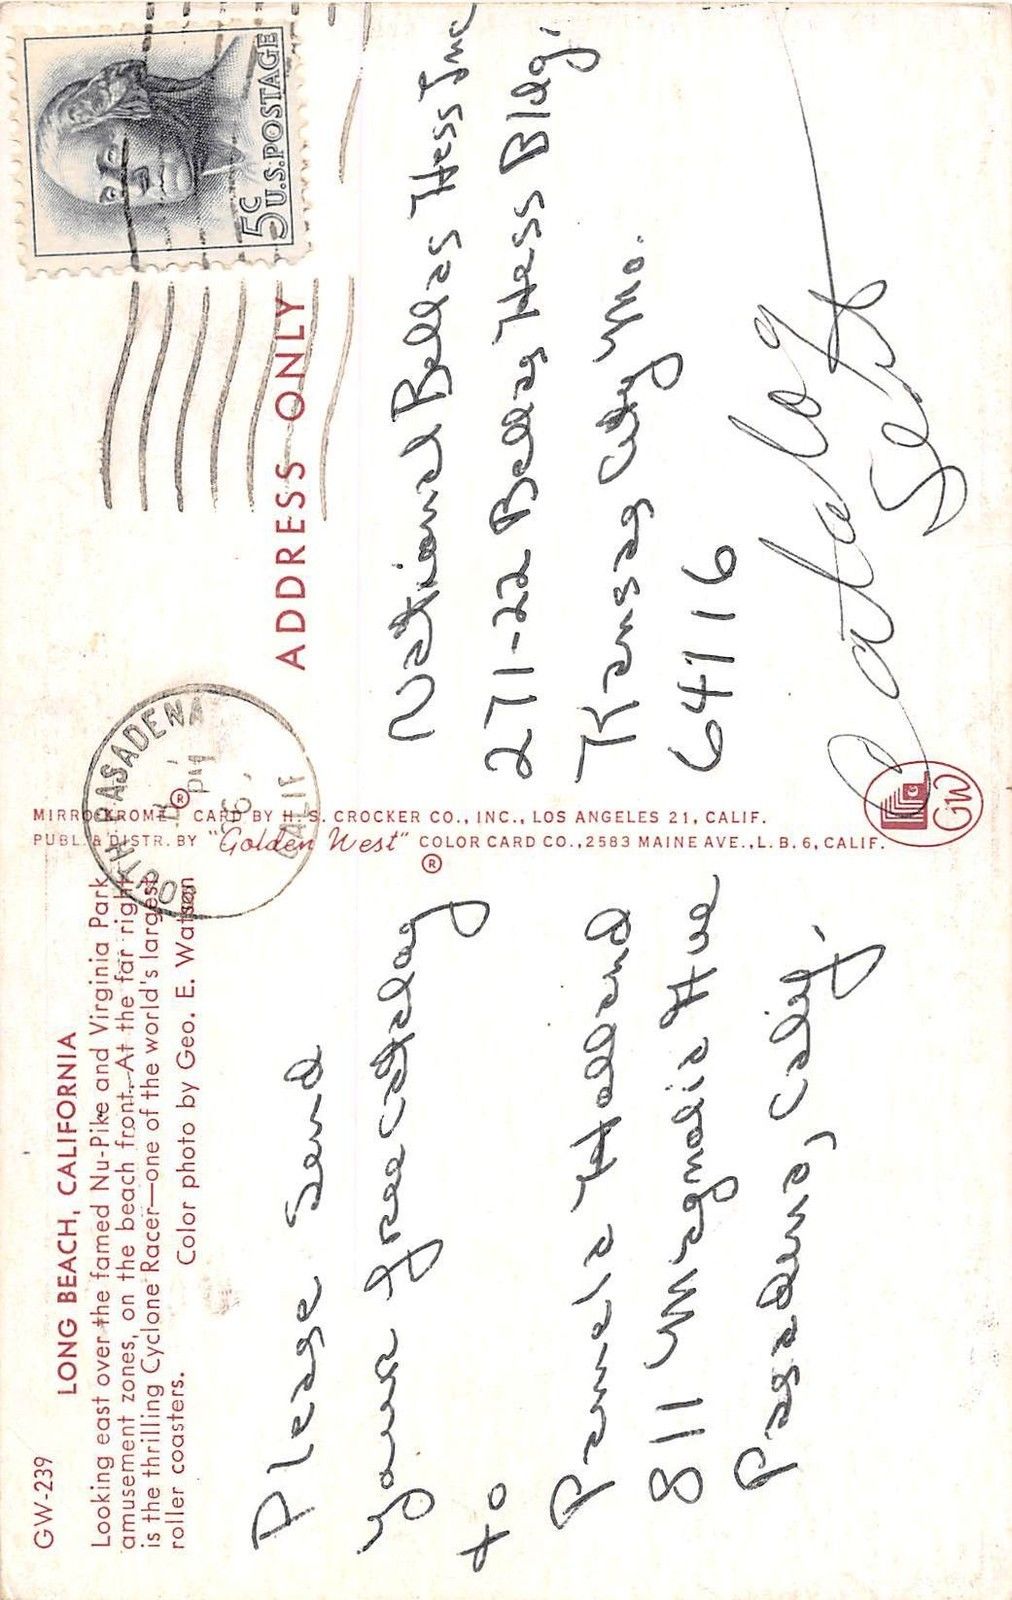 GW-239
LONG BEACH, CALIFORNIA
Looking east over the famed Nu-Pike and Virginia Park
amusement zones, on the beach front. At the far right
is the thrilling Cyclone Racer—one of the world's largest
roller coasters. Color photo by Geo. E. Watson
Please send
your free catalog
to
Pamela Holland
811 Magnolia Ave
Pasadena, Calif.
MIRRO-KROME® CARD BY H. S. CROCKER CO., INC., LOS ANGELES 21, CALIF.
PUBL. & DISTR. BY "Golden West" ® COLOR CARD CO., 2583 MAINE AVE., L. B. 6, CALIF.
C
GW
SOUTH PASADENA
PM
CALIF
5c U.S. POSTAGE
ADDRESS ONLY
National Bellas Hess Inc
271-22 Bellas Hess Bldg.
Kansas City Mo.
64116
Catalog
Sent